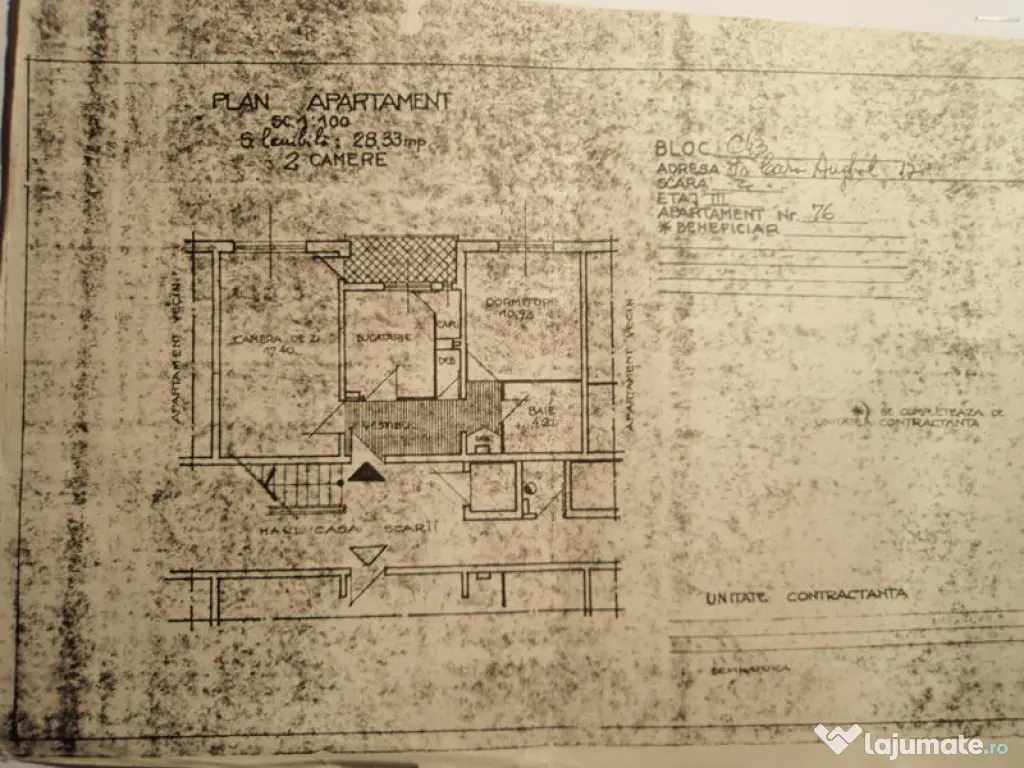 PLAN APARTAMENT
SC 1:100
S. locuibilă: 28,33 mp
2 CAMERE
BLOC
ADRESA
SCARA 2
ETAJ III
APARTAMENT Nr. 76
* BENEFICIAR
APARTAMENT VECIN
CAMERA DE ZI
17.40
BUCATARIE
CAM.
DEB
DORMITOR
10.93
BAIE
4.21
VESTIBUL
APARTAMENT VECIN
*) SE COMPLETEAZA DE
UNITATEA CONTRACTANTA
HALL/CASA SCARII
UNITATE CONTRACTANTA
SEMNATURA
lajumate.ro